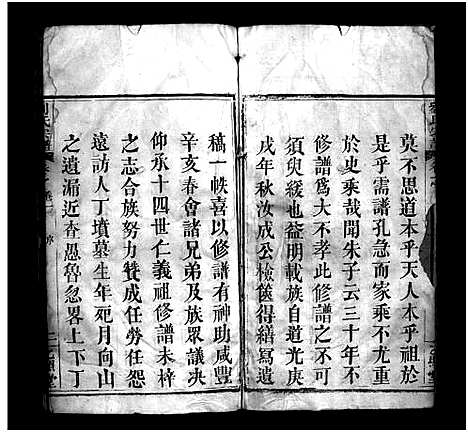 莫不思道本乎天人本乎祖於
是乎需譜孔急而家乘不尤重
於史乘哉聞朱子云三十年不
修譜爲大不孝此修譜之不可
須臾緩也益明載族自道光庚
戌年秋汝成公檢篋得繕寫遺
稿一帙喜以修譜有神助咸豐
辛亥春會諸兄弟及族眾議决
仰承十四世仁義祖修譜未梓
之志合族努力贊成任勞任怨
遠訪人丁墳墓生年死月向山
之遺漏近查愚魯忽畧上下丁
序